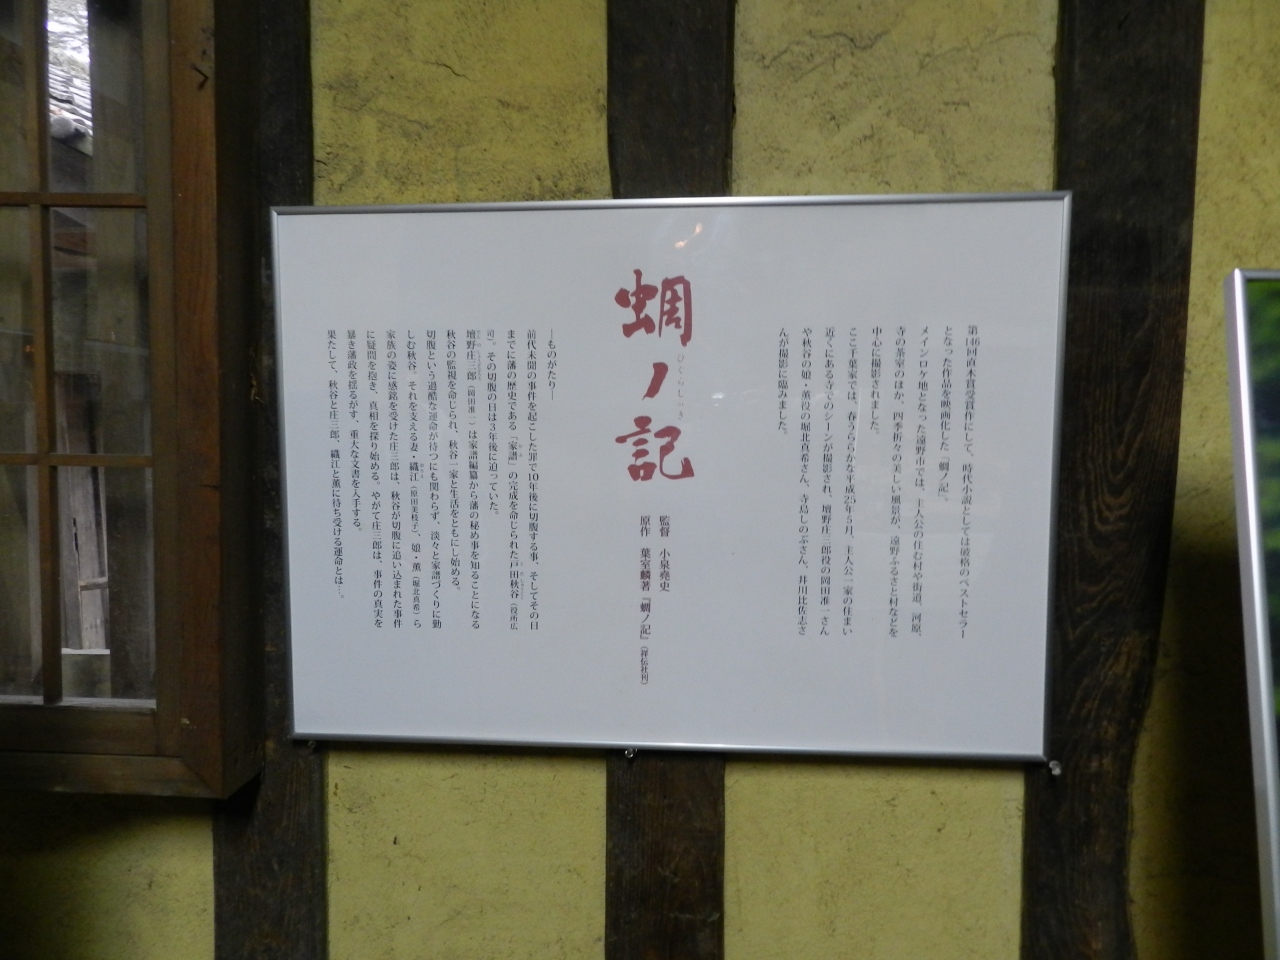 第146回直木賞受賞作にして、時代小説としては破格のベストセラー
となった作品を映画化した「蜩ノ記」。
メインロケ地となった遠野市では、主人公の住む村や街道、河原、
寺の茶室のほか、四季折々の美しい風景が、遠野ふるさと村などを
中心に撮影されました。
ここ千葉家では、春うららかな平成25年5月、主人公一家の住まい
近くにある寺でのシーンが撮影され、壇野庄三郎役の岡田准一さん
や秋谷の娘・薫役の堀北真希さん、寺島しのぶさん、井川比佐志さ
んが撮影に臨みました。
蜩ノ記
ひぐらしのき
監督 小泉堯史
原作 葉室麟著『蜩ノ記』(祥伝社刊)
―ものがたり―
前代未聞の事件を起こした罪で10年後に切腹する事、そしてその日
までに藩の歴史である「家譜」の完成を命じられた戸田秋谷(役所広
司)。その切腹の日は3年後に迫っていた。
壇野庄三郎(岡田准一)は家譜編纂から藩の秘め事を知ることになる
秋谷の監視を命じられ、秋谷一家と生活をともにし始める。
切腹という過酷な運命が待つにも関わらず、淡々と家譜づくりに勤
しむ秋谷、それを支える妻・織江(原田美枝子)、娘・薫(堀北真希)ら
家族の姿に感銘を受けた庄三郎は、秋谷が切腹に追い込まれた事件
に疑問を抱き、真相を探り始める。やがて庄三郎は、事件の真実を
暴き藩政を揺るがす、重大な文書を入手する。
果たして、秋谷と庄三郎、織江と薫に待ち受ける運命とは…。